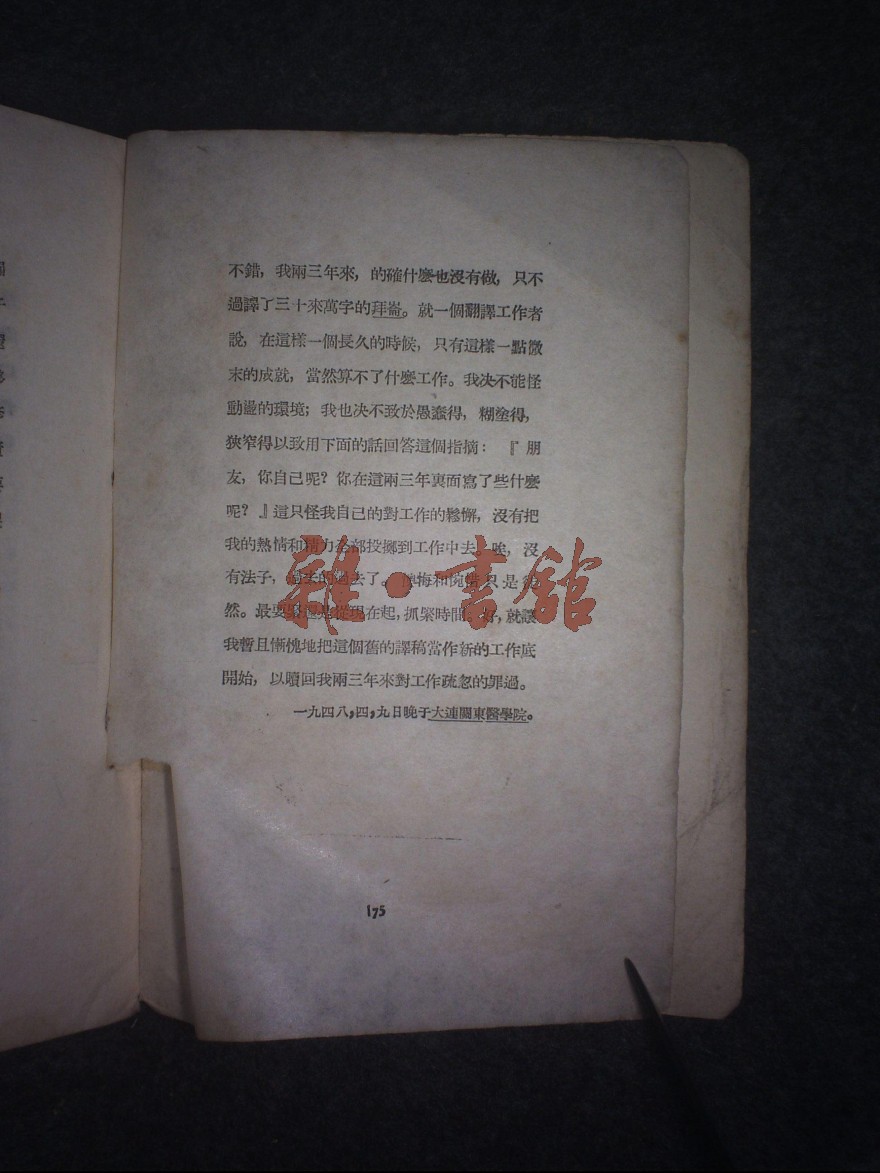 不錯，我兩三年來，的確什麼也沒有做，只不
過譯了三十來萬字的拜崙。就一個翻譯工作者
說，在這樣一個長久的時候，只有這樣一點微
末的成就，當然算不了什麼工作。我决不能怪
動盪的環境；我也决不致於愚蠢得，糊塗得，
狹窄得以致用下面的話回答這個指摘：『朋
友，你自己呢？你在這兩三年裏面寫了些什麼
呢？』這只怪我自己的對工作的鬆懈，沒有把
我的熱情和精力全部投擲到工作中去。唉，沒
有法子，過去的過去了。悔和惋惜只是
然。最要緊還是從現在起，抓緊時間。好，就讓
我暫且慚愧地把這個舊的譯稿當作新的工作底
開始，以贖回我兩三年來對工作疏忽的罪過。
一九四八，四，九日晚于大連關東醫學院。
175
雜·書舘